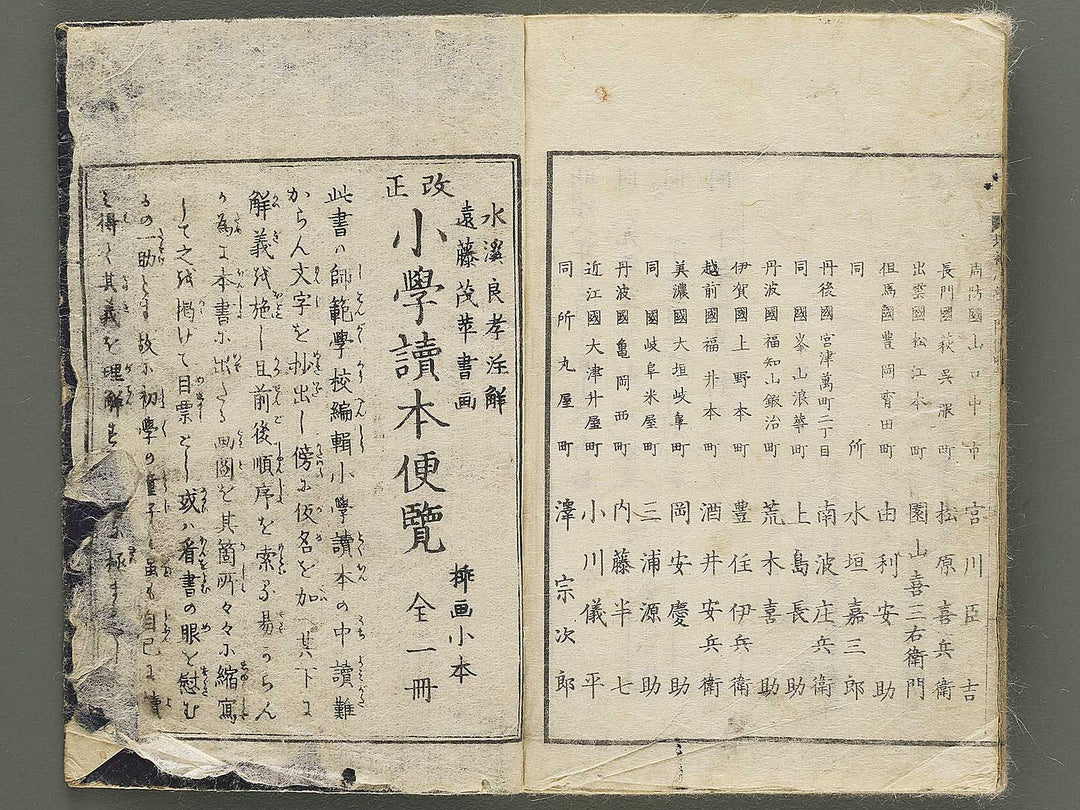 周防國山口中市 宮川臣吉
長門國萩呉服町 松原喜兵衛
出雲國松江本町 園山喜三右衛門
但馬國豊岡宵田町 由利安助
同所 水垣嘉三郎
丹後國宮津萬町二丁目 南波庄兵衛
同國峯山浪華町 上島長助
丹波國福知山鍛冶町 荒木喜助
伊賀國上野本町 豊住伊兵衛
越前國福井本町 酒井安兵衛
美濃國大垣岐阜町 岡安慶助
同國岐阜米屋町 三浦源助
丹波國亀岡西町 内藤半七
近江國大津升屋町 小川儀平
同所丸屋町 澤宗次郎
水溪良孝注解
遠藤茂苹書画
改正
小學讀本便覧 全一冊
挿画小本
此書ハ師範學校編輯小學讀本の中讀難
からん文字を抄出し傍に仮名を加へ其下に
解義を施し且前後順序を索るに易からん
が為に本書に出たる画圖を其箇所々々に縮寫
して之を掲けて目票とし或ハ看書の眼を慰む
るの一助とす故に初學の童子と雖も自己に讀
を得て其義を理解
極